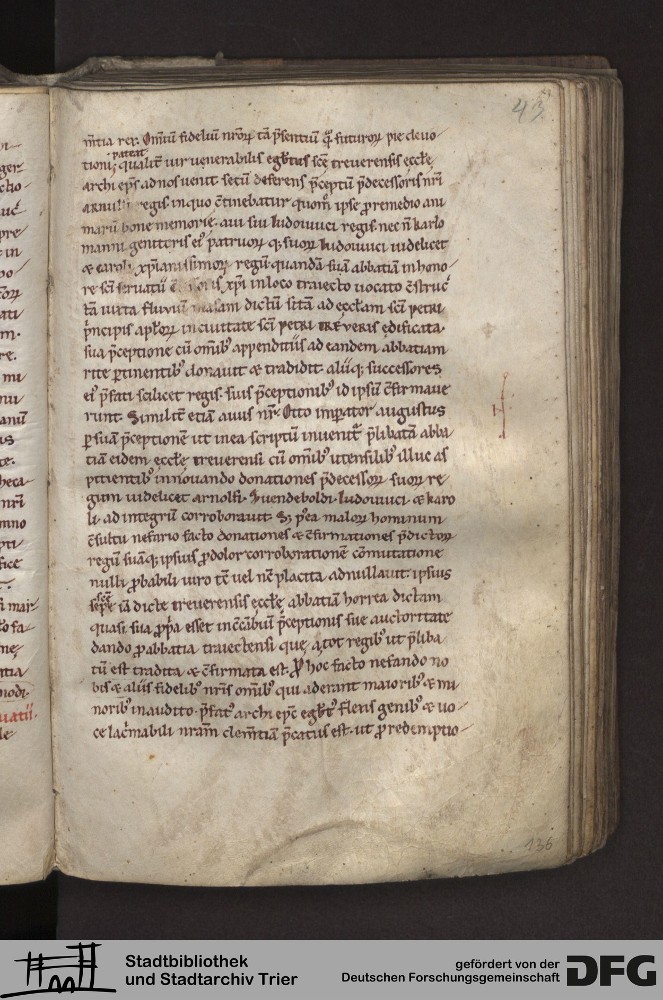 43
m̅tia rex. Omniu̅ fideliu̅ nr̅oꝝ ta̅ p̅sentiu̅ q̅ futuroꝝ pie deuo-
pateat
tioni; qualit̅ uir uenerabilis egb̅tus sc̅e treuerensis eccle̅
archi ep̅s ad nos uenit. secu̅ deferens p̅ceptu̅ p̅decessoris nr̅i
arnulfi regis. in quo c̅tinebatur quom̅ ipse pro remedio ani
maru̅ bone memorie. aui sui ludouuici regis. nec n̅ karlo
manni genitoris ei⁹ patruoꝝ q; suoꝝ ludouuici uidelicet
& caroli xp̅ianissimoꝝ regu̅. quanda̅ sua̅ abbatia̅ in hono-
re sc̅i seruatii xp̅i in loco traiecto uocato c̅struc̅
ta̅ iuxta fluuiu̅ masam dictu̅ sita̅ ad eccl̅am sc̅i petri
p̅ncipis apl̅oꝝ in ciuitate sc̅i petri treueris edificata.
sua p̅ceptione cu̅ om̅ib⁹ appenditiis ad eandem abbatiam
rite p̲tinentib⁹ donauit & tradidit. aliiq; successores
ei⁹ p̅fati scilicet regis. suis p̅ceptionib⁹ id ipsu̅ c̅firmaue
runt. Similit̅ etia̅ auus nr̅. Otto imp̲ator augustus
p̲ sua̅ p̅ceptione̅ ut in ea scriptu̅ inuenit̅. p̅libata̅ abba
tia̅ eidem eccle̅ treuerensi cu̅ om̅ib⁹ utensilib⁹ illuc as
p̲tientib⁹ innouando donationes p̅decessoꝝ suoꝝ re
gum uidelicet arnolfi. Zuendeboldi. ludouuici & karo
li. ad integru̅ corroborauit. S; p⁹ea maloꝝ hominum
c̅sultu nefario facto donationes & c̅firmationes p̅dictoꝝ
regu̅ sua̅q; ipsius ꝓdolor corroboratione̅ co̅mutatione
nulli ꝓbabili uiro te̅ uel ne̅ placita adnullauit. ipsius
sepe̅ ia̅ dicte treuerensis eccle̅. abbatia̅ horrea dictam
quasi sua ꝓp̅a esset in c̅cambiu̅ p̅ceptionis sue auctoritate
dando ꝓ abbatia traiectensi que̅ a tot regib⁹ ut p̅liba
tu̅ est tradita & c̅firmata est. Ꝓ hoc facto nefando no
bis & aliis fidelib⁹ nr̅is om̅ib⁹ qui aderant maiorib⁹ & mi
norib⁹ inaudito. p̅fat⁹ archi ep̅c egb̅t⁹ flexis genib⁹ & uo-
ce lac̅mabili nr̅am clem̅tia̅ p̅catus est. ut ꝓ redemptio-
136
Stadtbibliothek
und Stadtarchiv Trier
gefördert von der
Deutschen Forschungsgemeinschaft
DFG